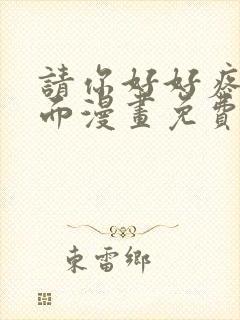 請你好好疼
而漫畫免費
東雷鄉